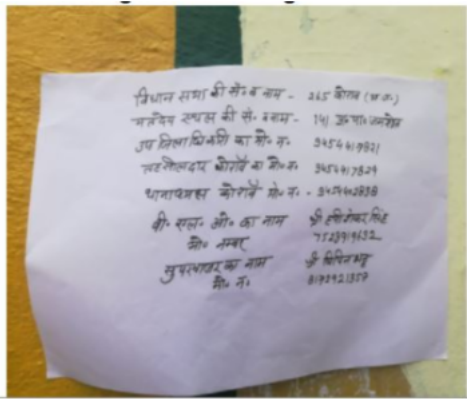 विधान सभा की सं० व नाम - 265 कोरांव (अ.जा.)
मतदेय स्थल की सं० व नाम - 141
उप जिलाधिकारी का मो० न० 9454417821
तहसीलदार कोरांव का मो० न० 9454417829
थानाध्यक्ष कोरांव मो० न० - 9454402838
बी० एल० ओ० का नाम श्री हरीशंकर सिंह
मो० नम्बर 7523919632
सुपरवाइजर का नाम श्री विपिन
मो० न०